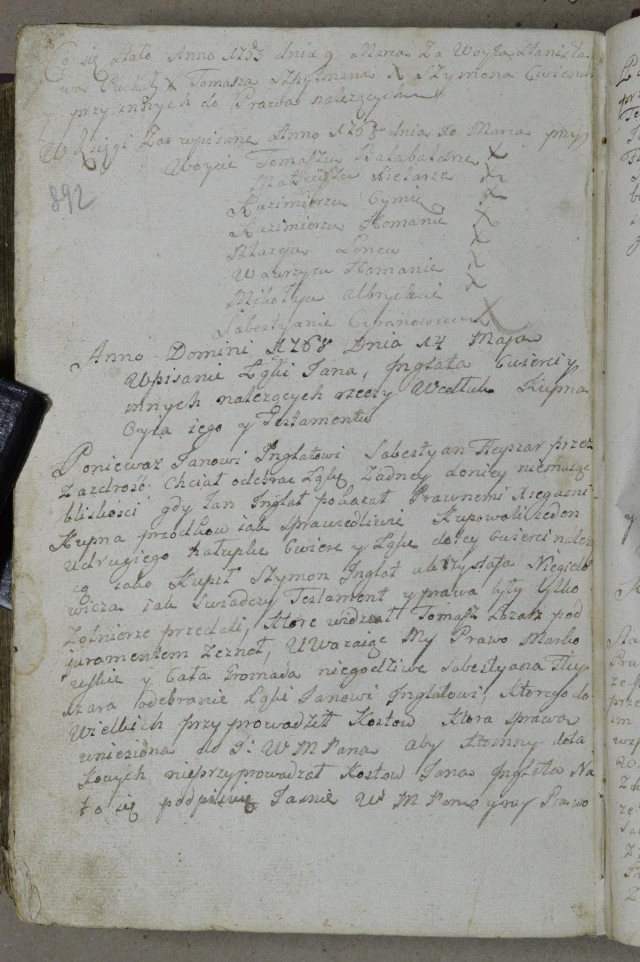 Co się stało Anno 1763 dnia 9 Marca Za Woyta Stanisła
wa Puchały X Tomasza X Szymona
y przy innych do Prawa należących
W księgi Zas wpisane Anno 1768 dnia 10 Marca przy
Woycie Tomaszu Bałabałdne X
Mateuszu Kielarze X
892
Kazimierzu Cymie X
Kazimierzu Homanie X
Błażeju Loncu X
Wawrzycu Homanie X
Mikołaju Albrychcie X
Sabestyanie X
Anno Domini 1768 Dnia 14 Maja
Wpisanie Łąki Jana Inglata Cwierci y
innych należących rzeczy Wedłuk Kupna
Oyca jego y Testamentu
Poniewaz Janowi Inglatowi Sabestyan przez
Zazdrość Chciał odebrac Łąkę Zadney doniey niemaiąc
bliskości gdy Jan Inglat pokazał Prawnemi Xięgami
Kupna przodków jak sprawiedliwie Kupowali jeden
udrugiego Chałupkę Cwierc y Łąkę dotey Cwierci należą
cą jako Kupił Szymon Inglat
wicza jak Swiadczy Testament y prawa były tylko
Zołnierze przedali, które widział Tomasz pod
juramentem zeznał, Uwazaiąc My Prawo
y Cała Gromada niegodziwe Sabestyana
odebranie Łąki Janowi Inglatowi, którego do
Wielkich przyprowadził Kosztow Ktora sprawa
uniesiona do J: W M Pana aby
kowych nieprzyprowadzał Kosztow Jana Inglata Na
to się podpisuję Jasnie W M Pan y my Prawo